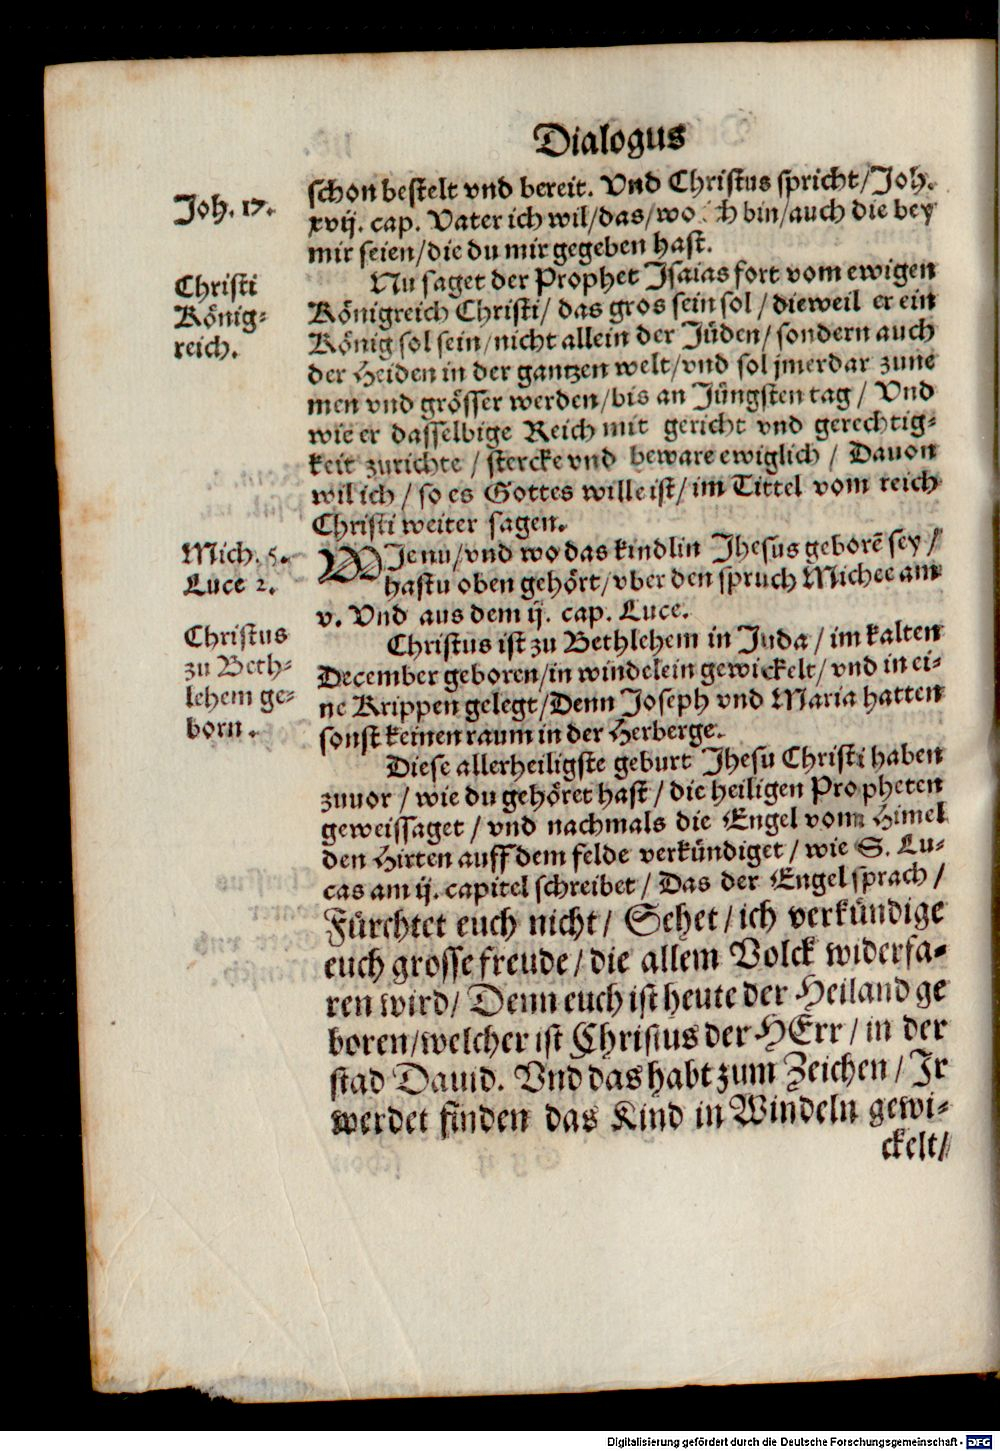 Dialogus
schon bestelt vnd bereit. Vnd Christus spricht/Joh.
Joh. 17.
xvij. cap. Vater ich wil/das/wo ich bin/auch die bey
mir seien/die du mir gegeben hast.
Christi
Nu saget der Prophet Isaias fort vom ewigen
König-
Königreich Christi/ das gros sein sol / dieweil er ein
reich.
König sol sein/nicht allein der Jüden/ sondern auch
der Heiden in der gantzen welt/vnd sol jmerdar zune
men vnd grösser werden/bis an Jüngsten tag / Vnd
wie er dasselbige Reich mit gericht vnd gerechtig-
keit zurichte / stercke vnd beware ewiglich / Dauon
wil ich / so es Gottes wille ist/ im Tittel vom reich
Christi weiter sagen.
Mich. 5.
Luce 2.
WJenu/vnd wo das kindlin Jhesus geborē sey /
hastu oben gehört/vber den spruch Michee am
v. Vnd aus dem ij. cap. Luce.
Christus
zu Beth-
lehem ge-
born.
Christus ist zu Bethlehem in Juda / im kalten
December geboren/in windelein gewickelt/ vnd in ei-
ne Krippen gelegt/Denn Joseph vnd Maria hatten
sonst keinen raum in der Herberge.
Diese allerheiligste geburt Jhesu Christi haben
zuuor / wie du gehöret hast / die heiligen Propheten
geweissaget / vnd nachmals die Engel vom Himel
den Hirten auff dem felde verkündiget / wie S. Lu-
cas am ij. capitel schreibet / Das der Engel sprach /
Fürchtet euch nicht/ Sehet/ich verkündige
euch grosse freude/die allem Volck widerfa-
ren wird/ Denn euch ist heute der Heiland ge
boren/welcher ist Christus der HErr/ in der
stad Dauid. Vnd das habt zum Zeichen / Ir
werdet finden das Kind in Windeln gewi-
ckelt/
Digitalisierung gefördert durch die Deutsche Forschungsgemeinschaft - DFG